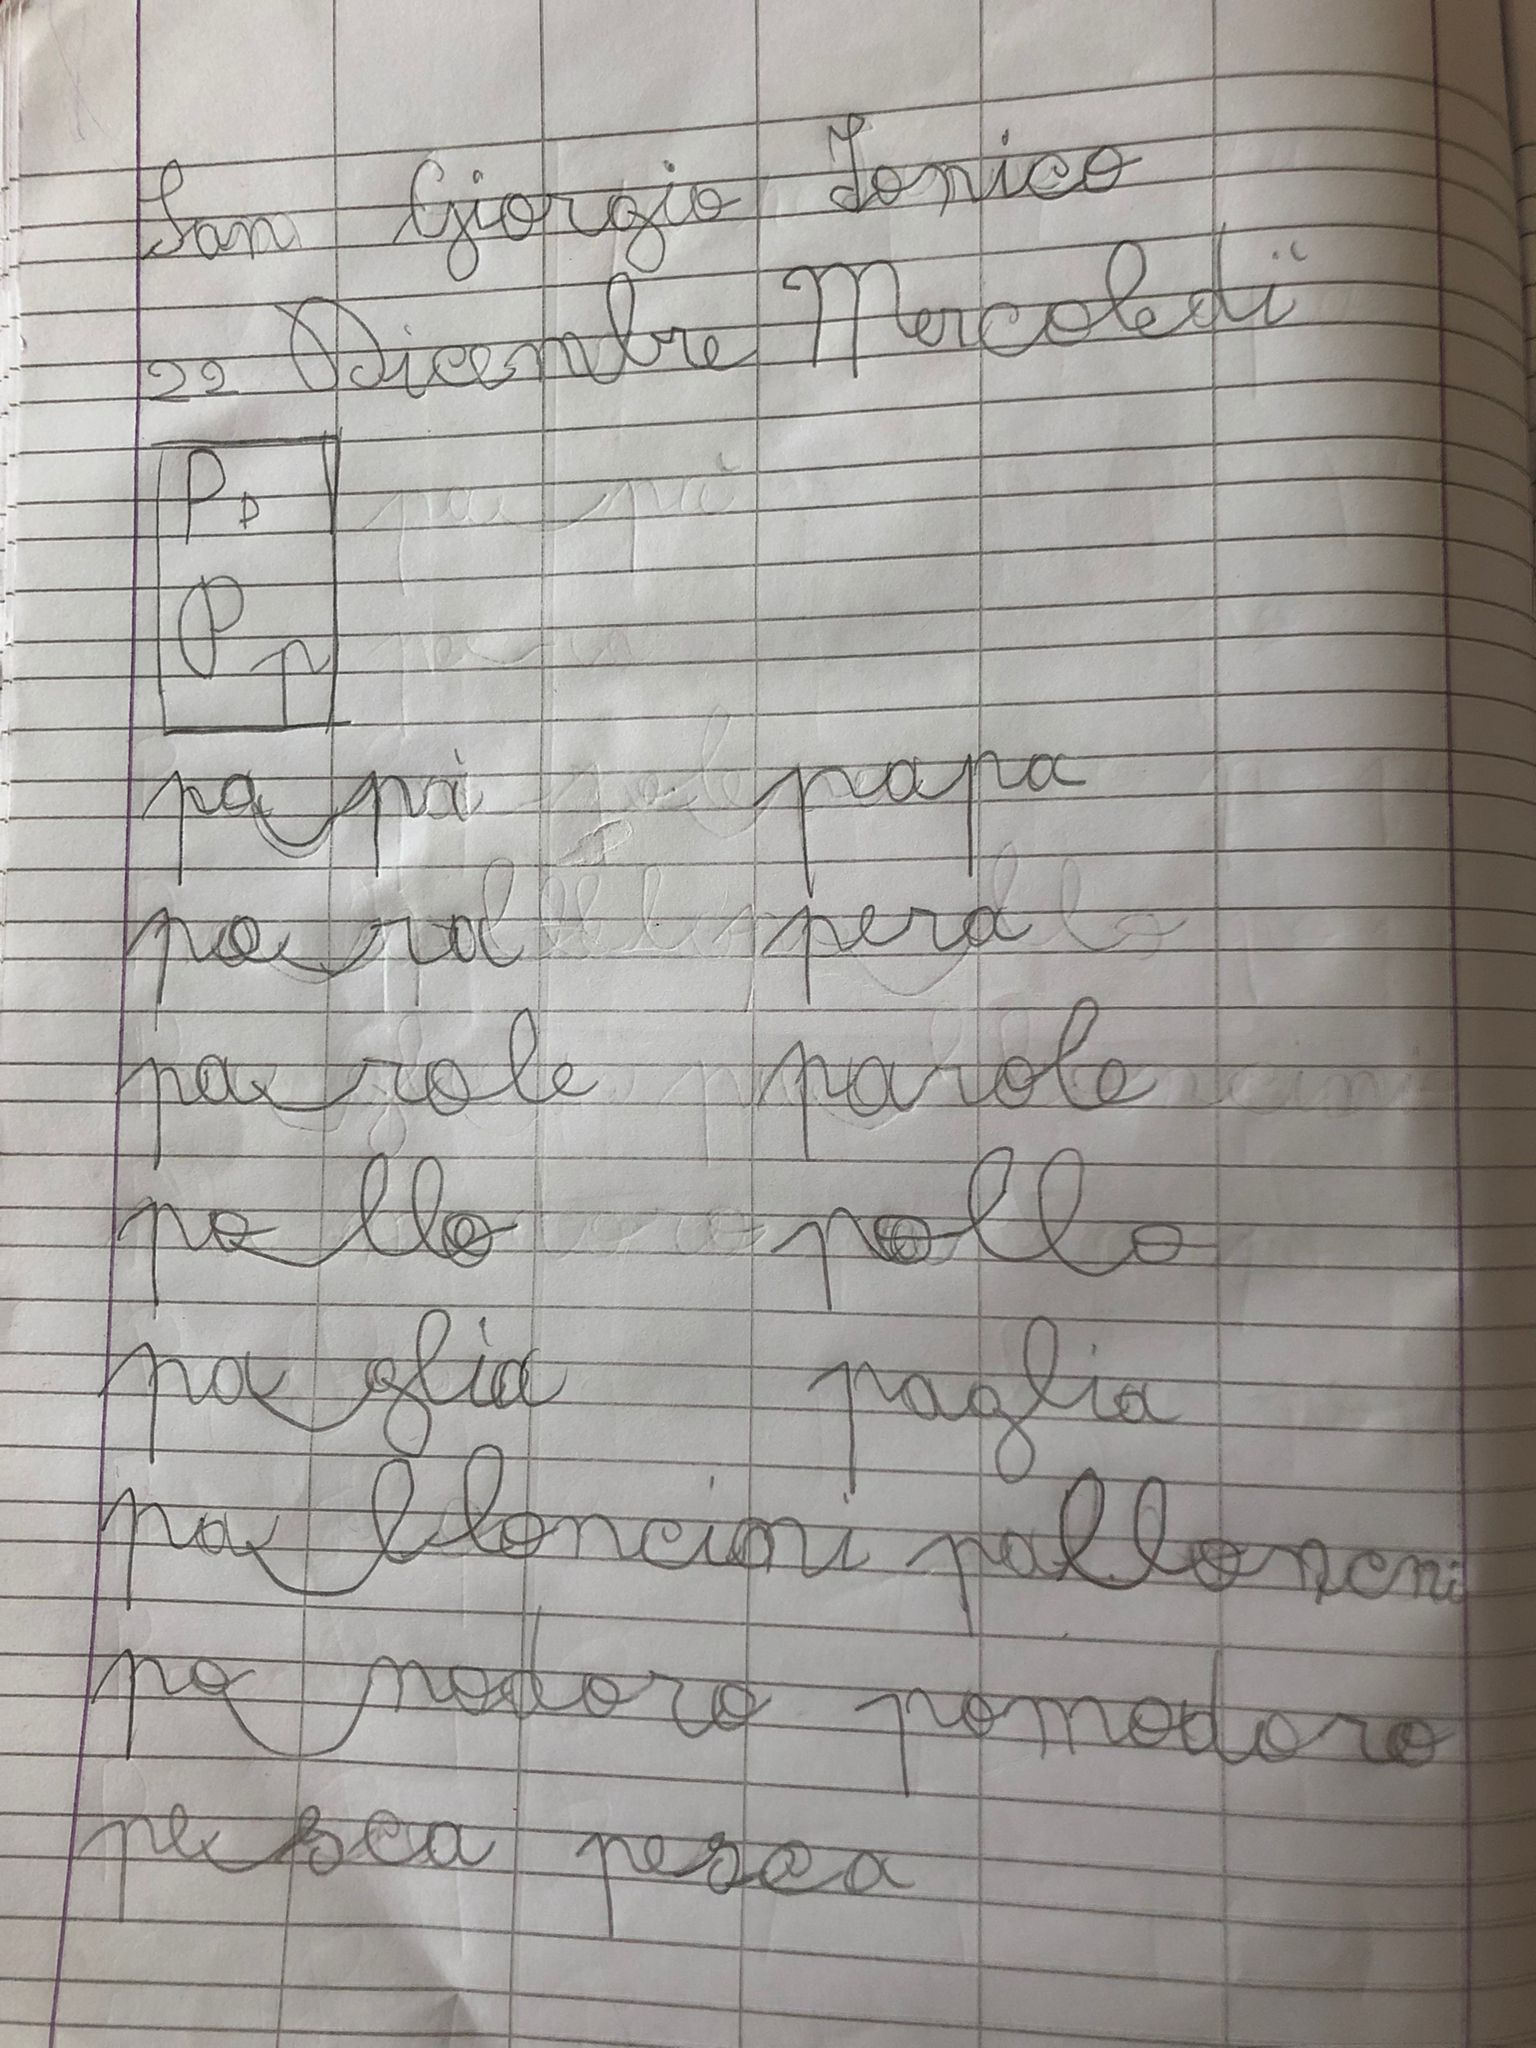 San Giorgio Jonico
22 Dicembre Mercoledì
P p
P p
pa pà papa
pe ra pera
pa role parole
po llo pollo
pa glia paglia
pa lloncini palloncni
po modoro pomodoro
pe sca pesca